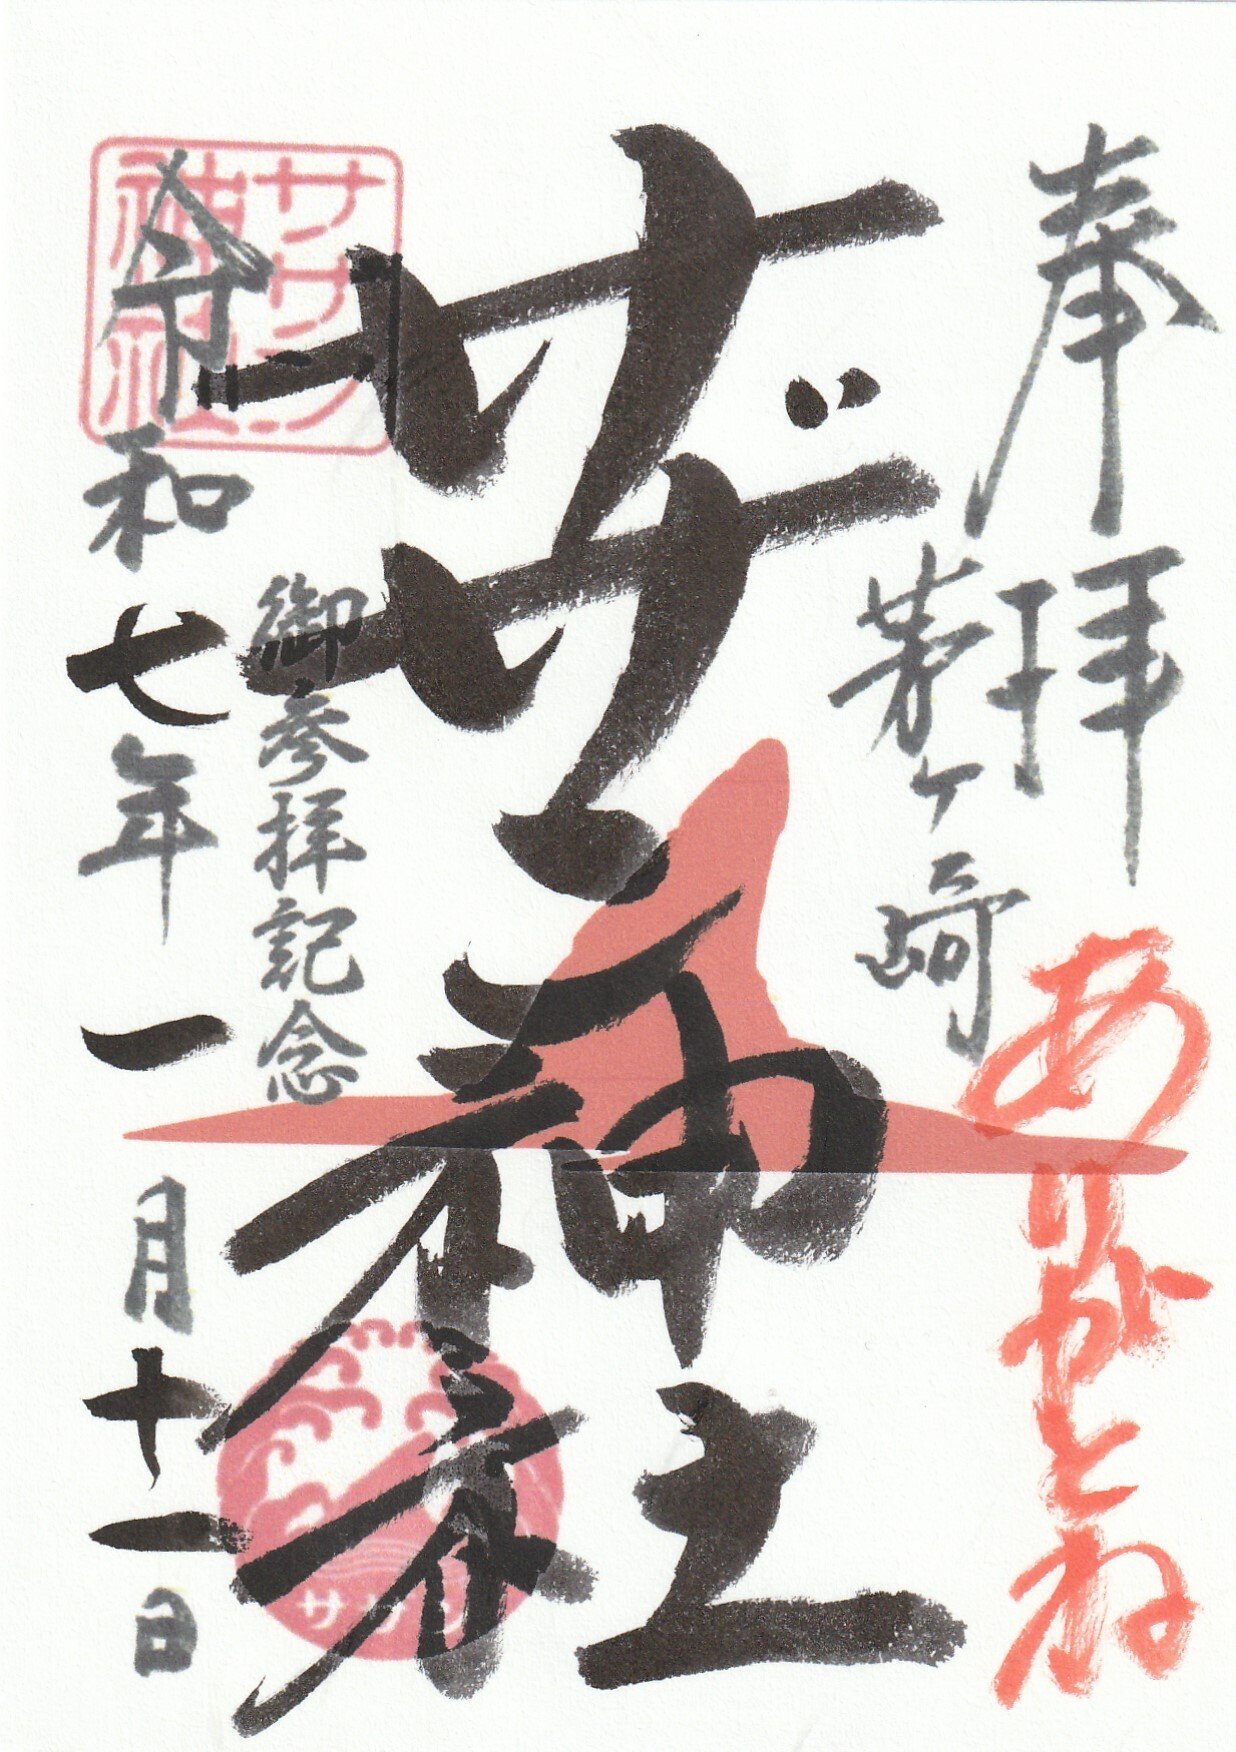 奉拝
ありがとね
茅ヶ崎
サザン神社
御参拝記念
令和七年一月十一日
サザン
神社
サザン